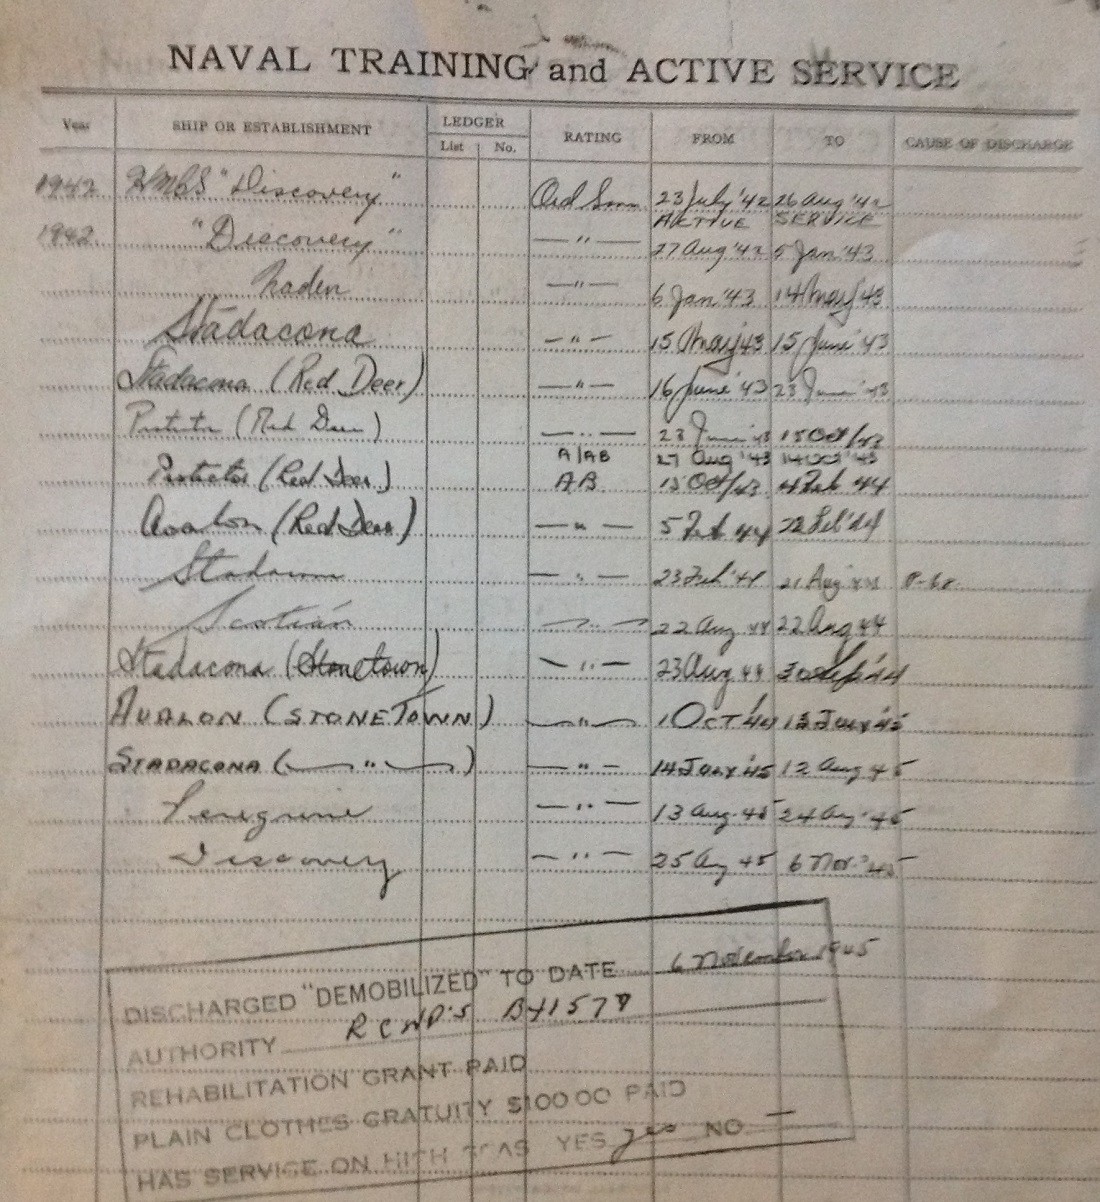 NAVAL TRAINING and ACTIVE SERVICE
Year SHIP OR ESTABLISHMENT LEDGER RATING FROM TO CAUSE OF DISCHARGE
List No.
1942 HMCS "Discovery" Ord Smn 23 July '42 26 Aug '42
ACTIVE SERVICE
1942 "Discovery" — " — 27 Aug '42 5 Jan '43
Naden — " — 6 Jan '43 14 May '43
Stadacona — " — 15 May '43 15 June '43
Stadacona (Red Deer) — " — 16 June '43 23 June '43
Protector (Red Deer) — " — 23 June '43 15 Oct/43
A/AB 27 Aug '43 14 Oct '43
Protector (Red Deer) AB 15 Oct/43 4 Feb 44
Avalon (Red Deer) — " — 5 Feb 44 22 Feb '44
Stadacona — " — 23 Feb '44 21 Aug '44
Scotian — " — 22 Aug 44 22 Aug 44
Stadacona (Stonetown) — " — 23 Aug 44 30 Sep '44
AVALON (STONETOWN) — " — 1 OCT '44 13 JULY '45
STADACONA ( — " — ) — " — 14 JULY '45 12 Aug 45
Peregrine — " — 13 Aug. 45 24 Aug '45
Discovery — " — 25 Aug 45 6 Nov. '45
DISCHARGED "DEMOBILIZED" TO DATE 6 November 1945
AUTHORITY RCND'S
REHABILITATION GRANT PAID
PLAIN CLOTHES GRATUITY $100.00 PAID
HAS SERVICE ON HIGH SEAS YES yes NO —